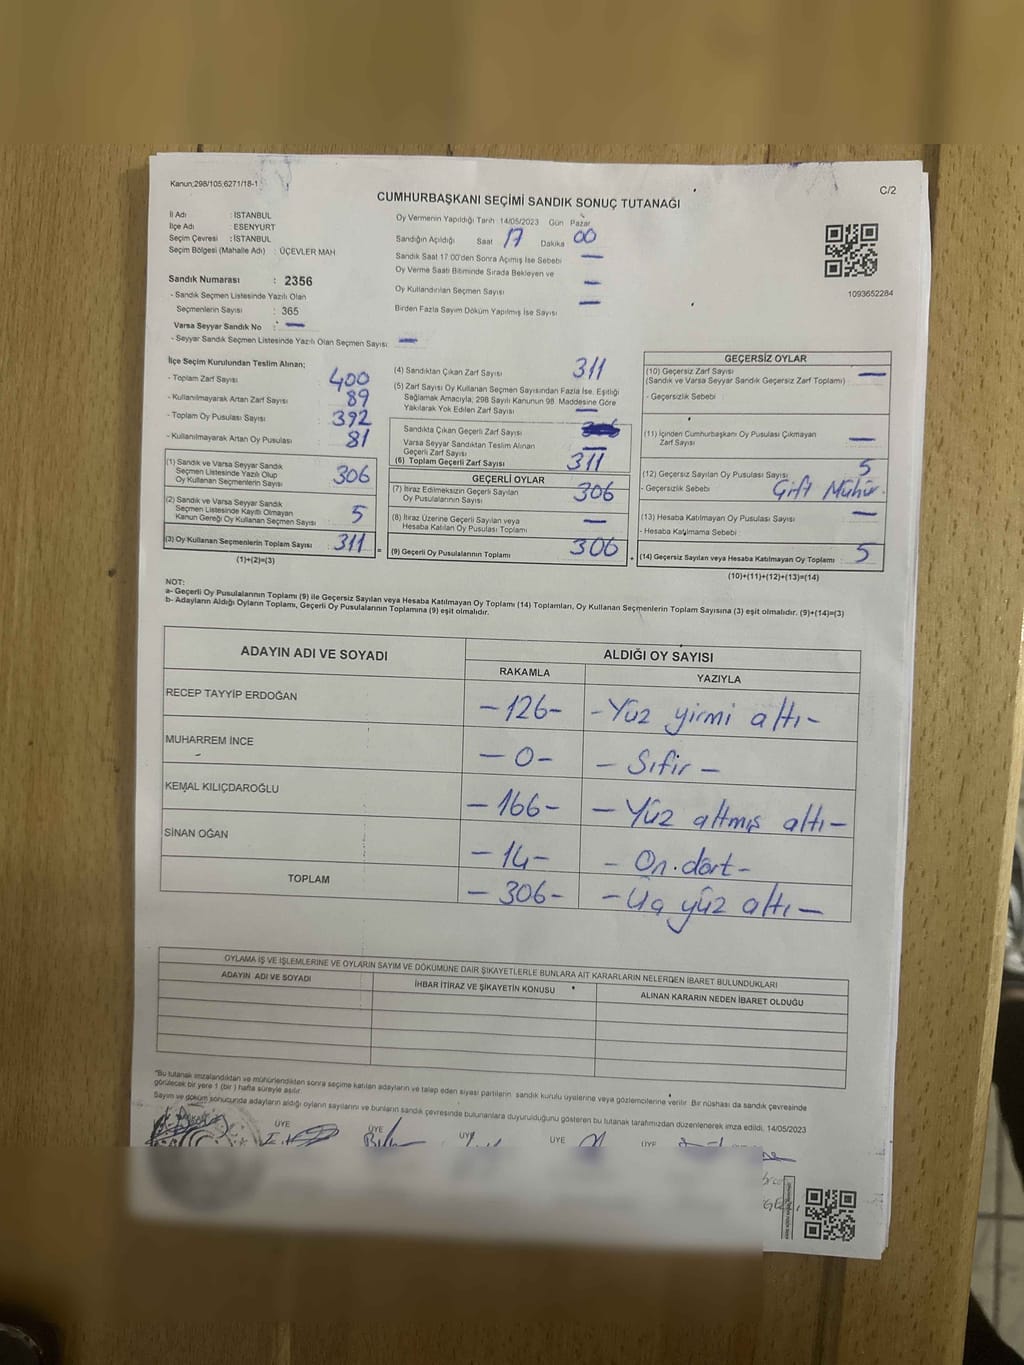 Kanun;298/105;6271/18-1
C/2
CUMHURBAŞKANI SEÇİMİ SANDIK SONUÇ TUTANAĞI
İl Adı : İSTANBUL
İlçe Adı : ESENYURT
Seçim Çevresi : İSTANBUL
Seçim Bölgesi (Mahalle Adı) : ÜÇEVLER MAH
Sandık Numarası : 2356
- Sandık Seçmen Listesinde Yazılı Olan
Seçmenlerin Sayısı : 365
Varsa Seyyar Sandık No : —
- Seyyar Sandık Seçmen Listesinde Yazılı Olan Seçmen Sayısı: —
Oy Vermenin Yapıldığı Tarih 14/05/2023 Gün Pazar
Sandığın Açıldığı Saat 17 Dakika 00
Sandık Saat 17:00'den Sonra Açımış İse Sebebi —
Oy Verme Saati Bitiminde Sırada Bekleyen ve
Oy Kullandırılan Seçmen Sayısı —
Birden Fazla Sayım Döküm Yapılmış İse Sayısı —
1093652284
İlçe Seçim Kurulundan Teslim Alınan;
- Toplam Zarf Sayısı : 400
- Kullanılmayarak Artan Zarf Sayısı : 89
- Toplam Oy Pusulası Sayısı : 392
- Kullanılmayarak Artan Oy Pusulası : 81
(1) Sandık ve Varsa Seyyar Sandık
Seçmen Listesinde Yazılı Olup
Oy Kullanan Seçmenlerin Sayısı : 306
(2) Sandık ve Varsa Seyyar Sandık
Seçmen Listesinde Kayıtlı Olmayan
Kanun Gereği Oy Kullanan Seçmen Sayısı : 5
(3) Oy Kullanan Seçmenlerin Toplam Sayısı : 311
(1)+(2)=(3)
(4) Sandıktan Çıkan Zarf Sayısı 311
(5) Zarf Sayısı Oy Kullanan Seçmen Sayısından Fazla İse, Eşitliği
Sağlamak Amacıyla; 298 Sayılı Kanunun 98. Maddesine Göre
Yakılarak Yok Edilen Zarf Sayısı —
Sandıkta Çıkan Geçerli Zarf Sayısı
Varsa Seyyar Sandıktan Teslim Alınan
Geçerli Zarf Sayısı —
(6) Toplam Geçerli Zarf Sayısı 311
GEÇERLİ OYLAR
(7) İtiraz Edilmeksizin Geçerli Sayılan
Oy Pusulalarının Sayısı 306
(8) İtiraz Üzerine Geçerli Sayılan veya
Hesaba Katılan Oy Pusulası Toplamı —
(9) Geçerli Oy Pusulalarının Toplamı 306
GEÇERSİZ OYLAR
(10) Geçersiz Zarf Sayısı —
(Sandık ve Varsa Seyyar Sandık Geçersiz Zarf Toplamı)
- Geçersizlik Sebebi
(11) İçinden Cumhurbaşkanı Oy Pusulası Çıkmayan
Zarf Sayısı —
(12) Geçersiz Sayılan Oy Pusulası Sayısı 5
- Geçersizlik Sebebi Çift Mühür.
(13) Hesaba Katılmayan Oy Pusulası Sayısı —
- Hesaba Katılmama Sebebi :
(14) Geçersiz Sayılan veya Hesaba Katılmayan Oy Toplamı : 5
(10)+(11)+(12)+(13)=(14)
NOT:
a- Geçerli Oy Pusulalarının Toplamı (9) ile Geçersiz Sayılan veya Hesaba Katılmayan Oy Toplamı (14) Toplamları, Oy Kullanan Seçmenlerin Toplam Sayısına (3) eşit olmalıdır. (9)+(14)=(3)
b- Adayların Aldığı Oyların Toplamı, Geçerli Oy Pusulalarının Toplamına (9) eşit olmalıdır.
ADAYIN ADI VE SOYADI ALDIĞI OY SAYISI
RAKAMLA YAZIYLA
RECEP TAYYİP ERDOĞAN -126- - Yüz yirmi altı -
MUHARREM İNCE - 0 - - Sıfır -
KEMAL KILIÇDAROĞLU -166- - Yüz altmış altı -
SİNAN OĞAN -14- - On.dört -
TOPLAM -306- - Üç yüz altı -
OYLAMA İŞ VE İŞLEMLERİNE VE OYLARIN SAYIM VE DÖKÜMÜNE DAİR ŞİKAYETLERLE BUNLARA AİT KARARLARIN NELERDEN İBARET BULUNDUKLARI
ADAYIN ADI VE SOYADI İHBAR İTİRAZ VE ŞİKAYETİN KONUSU ALINAN KARARIN NEDEN İBARET OLDUĞU
"Bu tutanak imzalandıktan ve mühürlendikten sonra seçime katılan adayların ve talep eden siyasi partilerin sandık kurulu üyelerine veya gözlemcilerine verilir. Bir nüshası da sandık çevresinde
görülecek bir yere 1 (bir) hafta süreyle asılır.
Sayım ve döküm sonucunda adayların aldığı oyların sayılarını ve bunların sandık çevresinde bulunanlara duyurulduğunu gösteren bu tutanak tarafımızdan düzenlenerek imza edildi, 14/05/2023
ÜYE ÜYE ÜYE ÜYE ÜYE